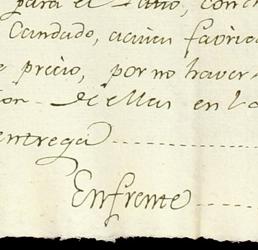 para el Patio, con ch
Candado, acuien favric
e precio, por no haver
ion - de ellas en la
entrega
Enfrente